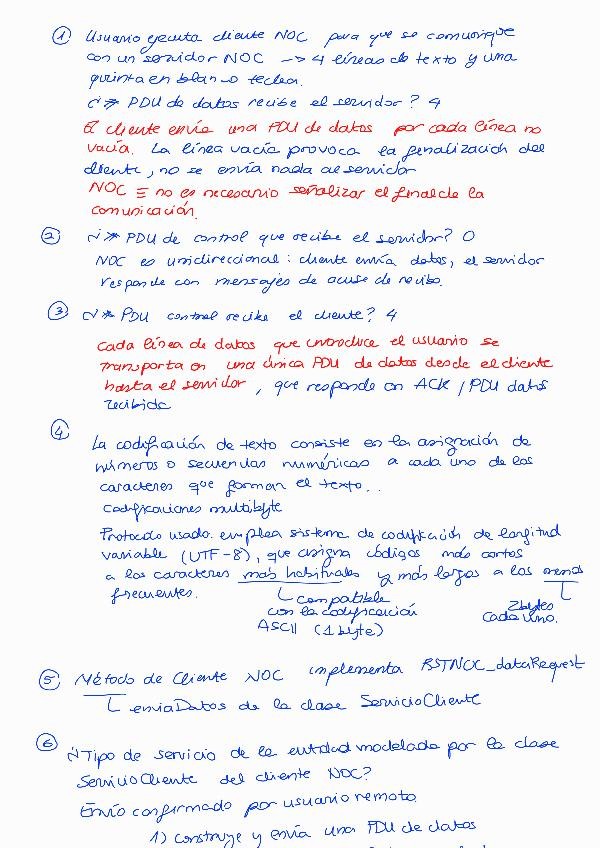 ① Usuario ejecuta cliente NOC para que se comunique
con un servidor NOC → 4 líneas de texto y una
quinta en blanco teclea.
¿Nº PDU de datos recibe el servidor? 4
El cliente envía una PDU de datos por cada línea no
vacía. La línea vacía provoca la finalización del
cliente, no se envía nada al servidor
NOC ≡ no es necesario señalizar el final de la
comunicación.
② ¿Nº PDU de control que recibe el servidor? 0
NOC es unidireccional: cliente envía datos, el servidor
responde con mensajes de acuse de recibo.
③ ¿Nº PDU control recibe el cliente? 4
Cada línea de datos que introduce el usuario se
transporta en una única PDU de datos desde el cliente
hasta el servidor, que responde con ACK / PDU datos
recibida
④
La codificación de texto consiste en la asignación de
números o secuencias numéricas a cada uno de los
caracteres que forman el texto..
Codificaciones multibyte
Protocolo usado emplea sistema de codificación de longitud
variable (UTF-8), que asigna códigos más cortos
a los caracteres más habituales y más largos a los menos
frecuentes.
compatible
con la codificación
ASCII (1 byte)
2 bytes
cada uno.
⑤ Método de Cliente NOC implementa RSTNOC_dataRequest
enviaDatos de la clase ServicioCliente
⑥
¿Tipo de servicio de la entidad modelada por la clase
ServicioCliente del cliente NOC?
Envío confirmado por usuario remoto
1) Construye y envía una PDU de datos